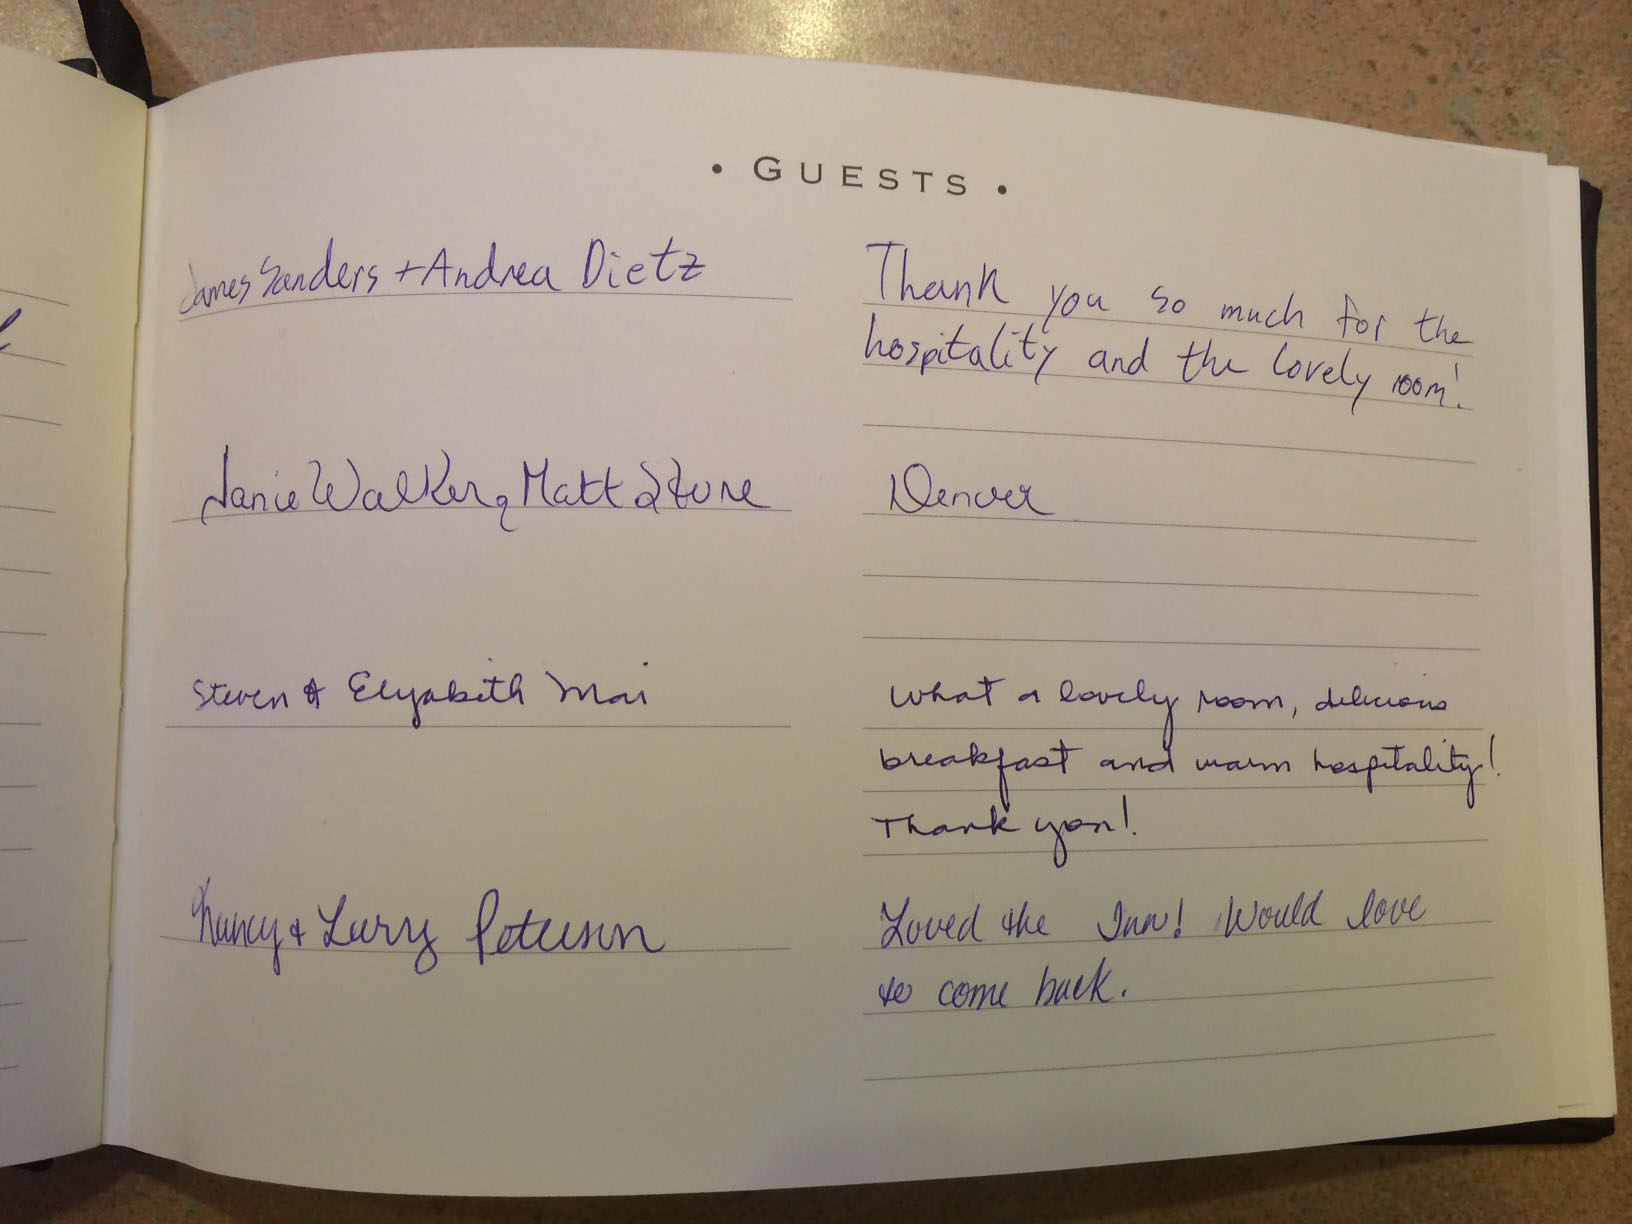 • GUESTS •
James Sanders + Andrea Dietz
Thank you so much for the
hospitality and the lovely room!
Janie Walker, Matt Stone
Denver
Steven & Elizabeth Mai
What a lovely room, delicious
breakfast and warm hospitality!
Thank you!
Nancy & Larry Peterson
Loved the Inn! Would love
to come back.